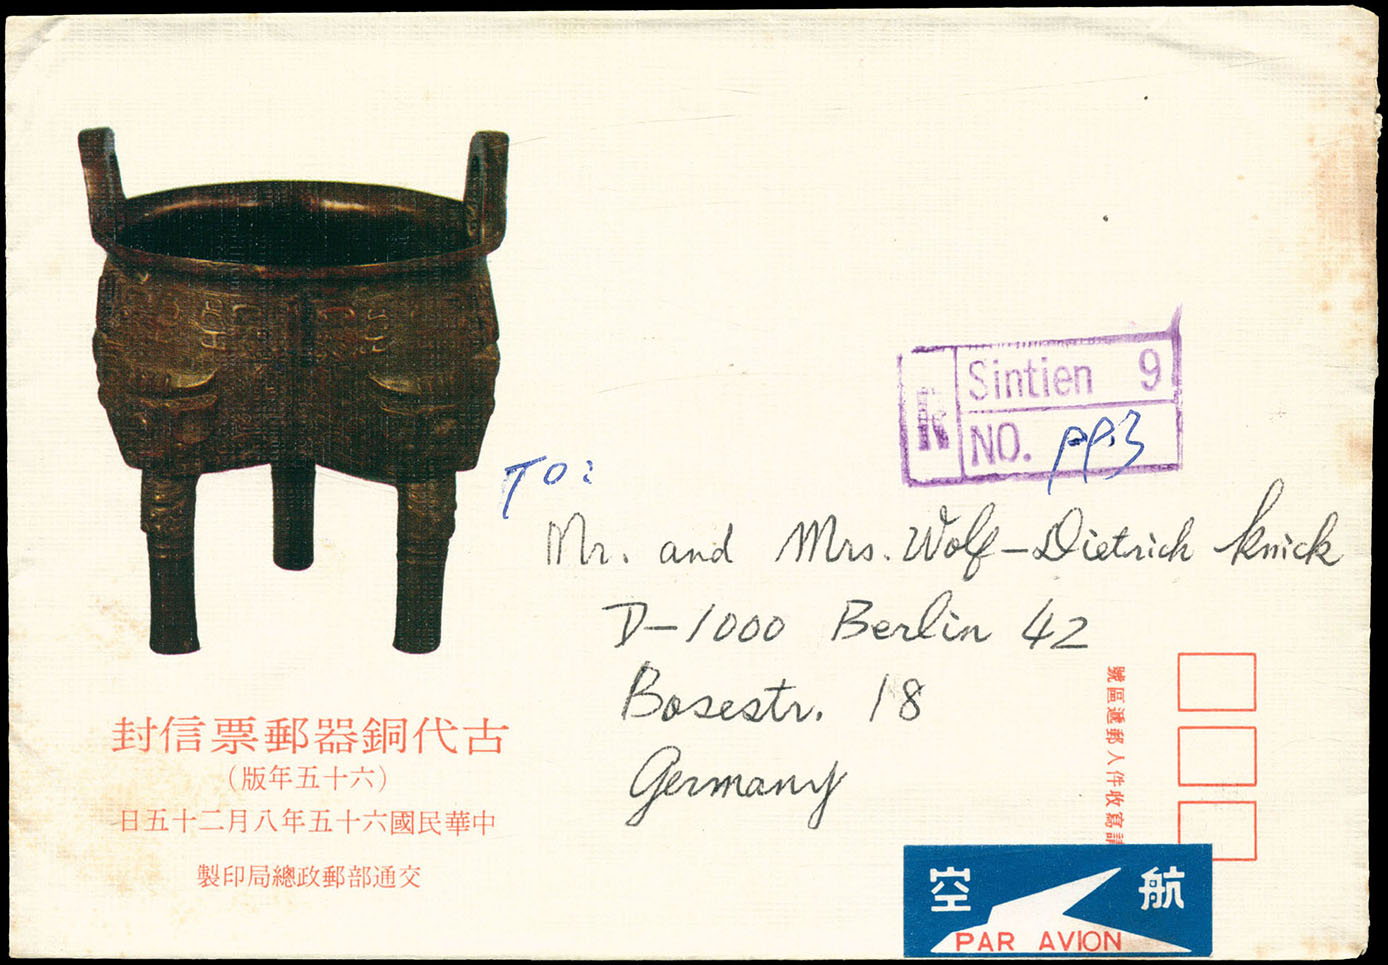 R
Sintien 9
NO.
TO:
Mr. and Mrs. Wolf-Dietrich Knick
D-1000 Berlin 42
Bosestr. 18
Germany
古代銅器郵票信封
(六十五年版)
中華民國六十五年八月二十五日
交通部郵政總局印製
請寫收件人郵遞區號
航空
PAR AVION